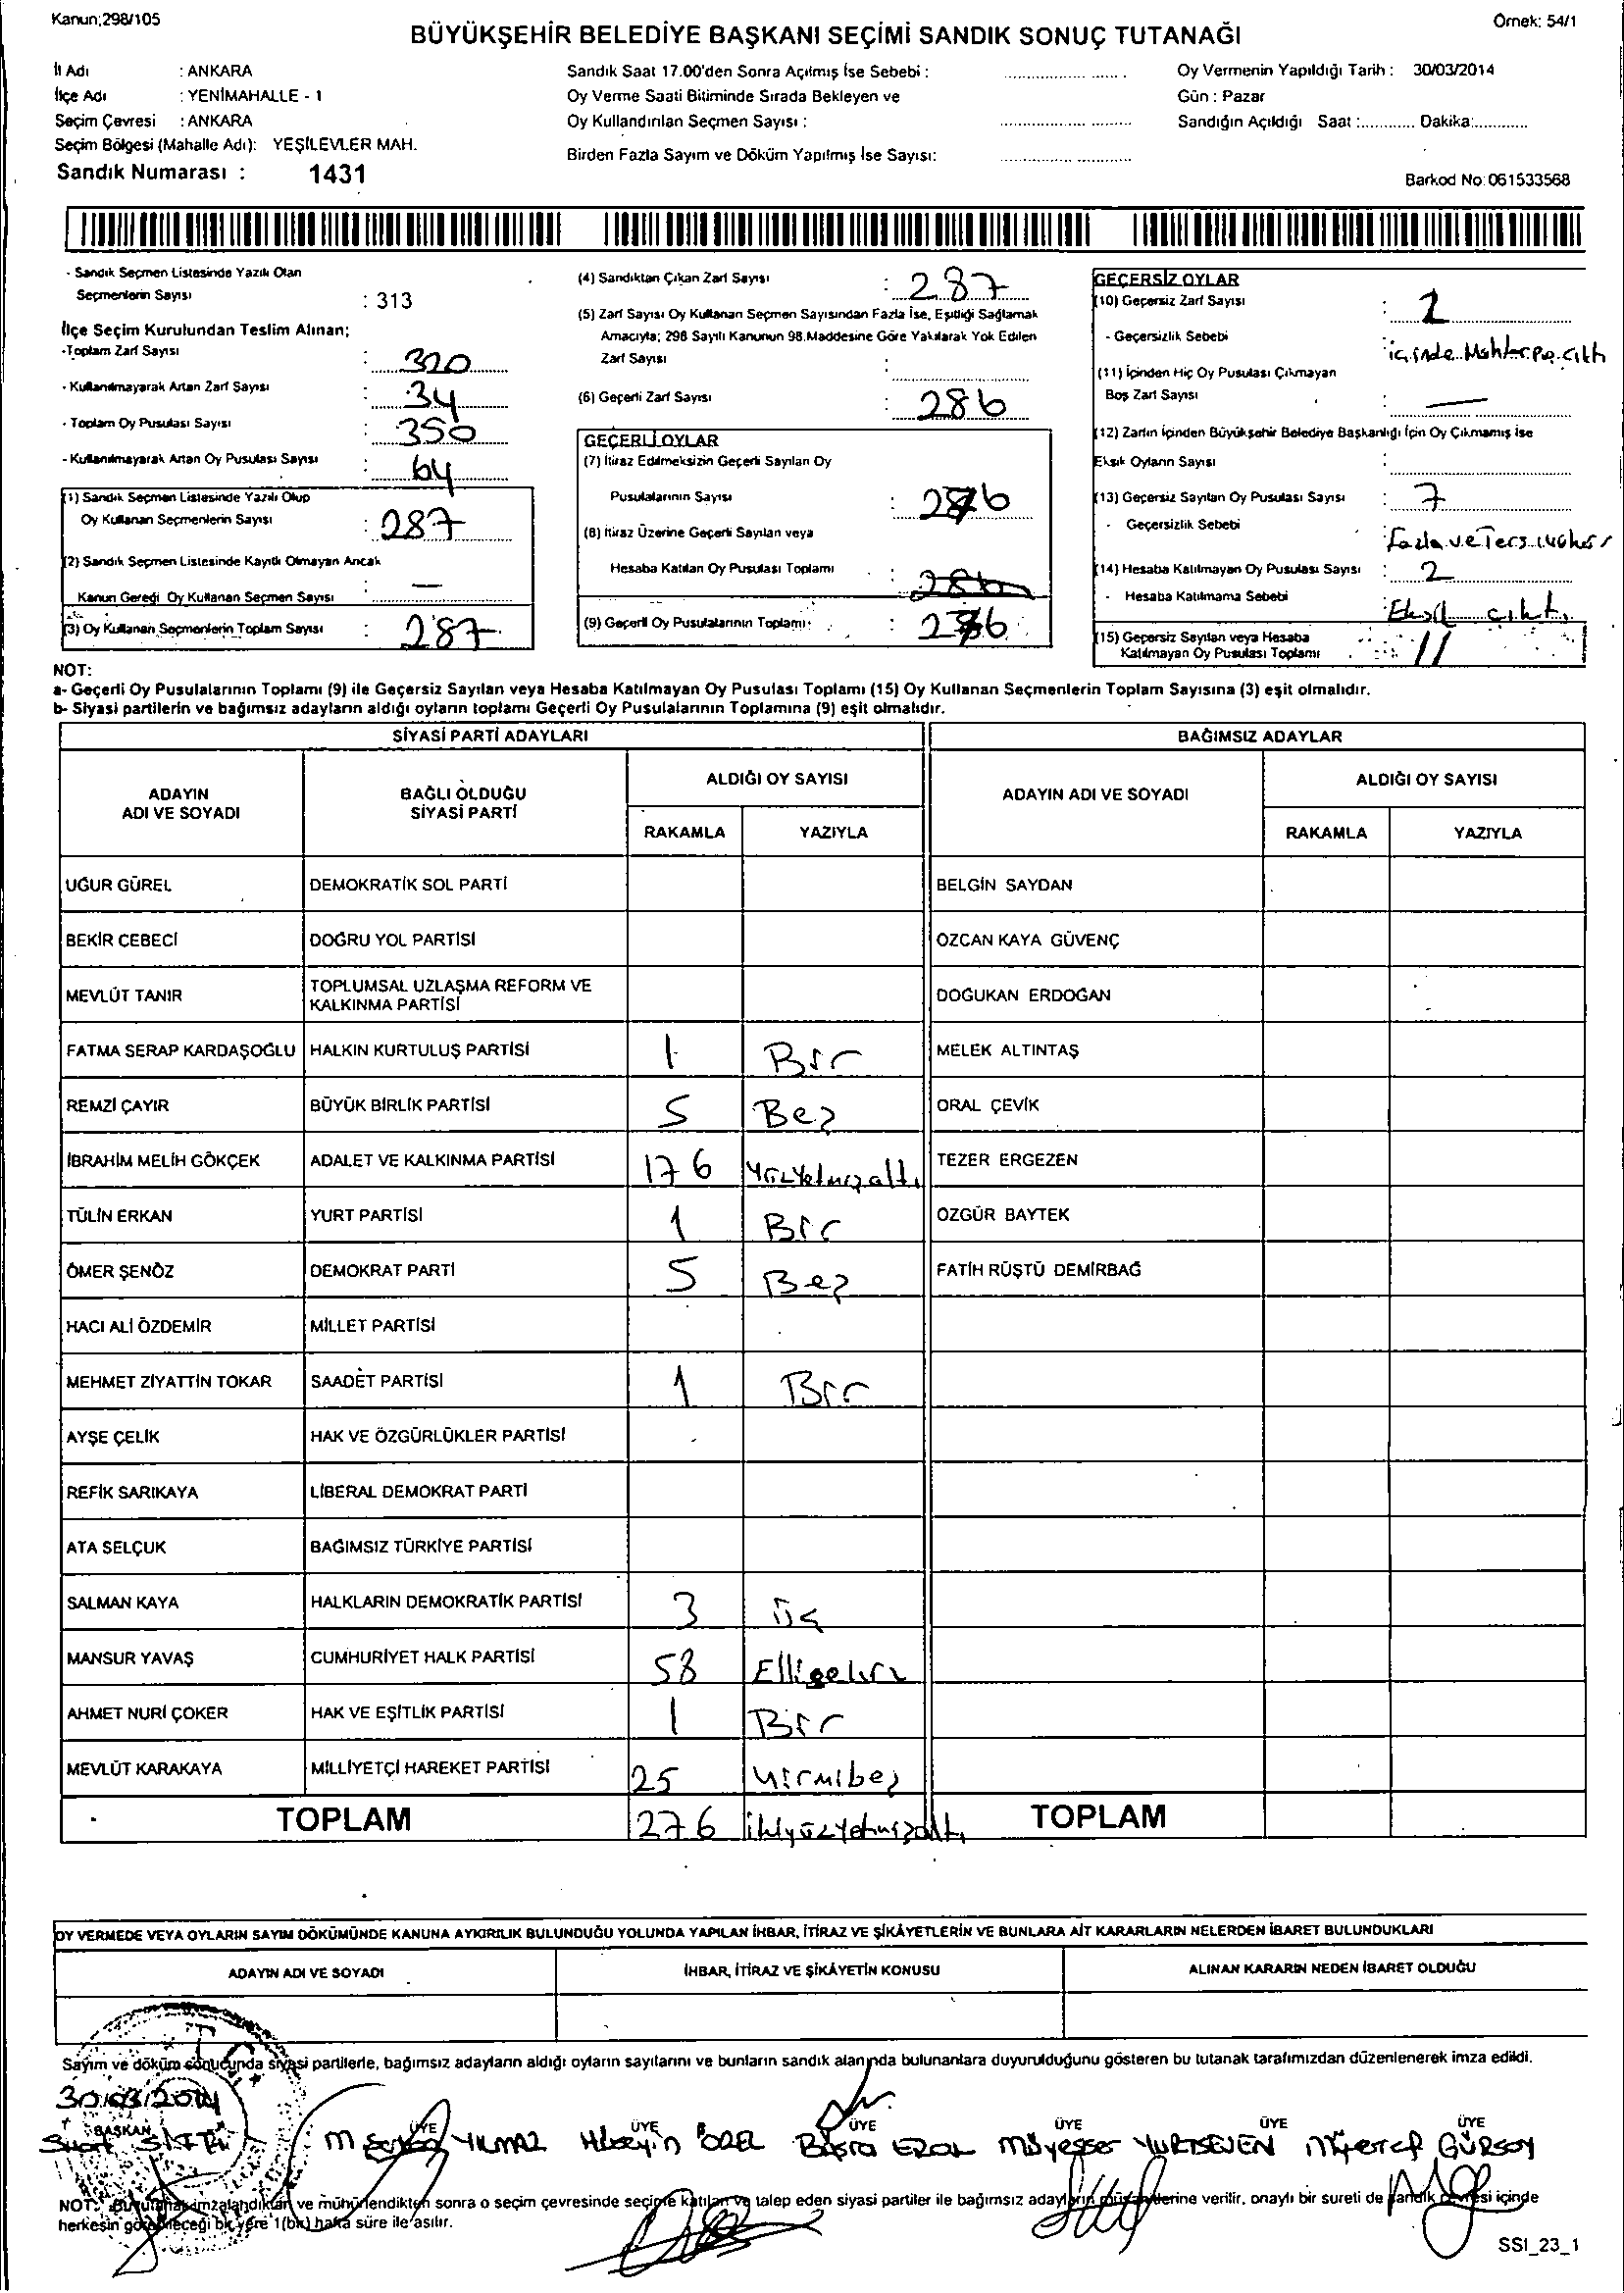 Kanun;298/105
Örnek: 54/1
BÜYÜKŞEHİR BELEDİYE BAŞKANI SEÇİMİ SANDIK SONUÇ TUTANAĞI
İl Adı : ANKARA
İlçe Adı : YENİMAHALLE - 1
Seçim Çevresi : ANKARA
Seçim Bölgesi (Mahalle Adı): YEŞİLEVLER MAH.
Sandık Numarası : 1431
Sandık Saat 17.00'den Sonra Açılmış İse Sebebi :
Oy Verme Saati Bitiminde Sırada Bekleyen ve
Oy Kullandırılan Seçmen Sayısı :
Birden Fazla Sayım ve Döküm Yapılmış İse Sayısı:
Oy Vermenin Yapıldığı Tarih : 30/03/2014
Gün : Pazar
Sandığın Açıldığı Saat :............ Dakika:............
Barkod No:061533568
- Sandık Seçmen Listesinde Yazılı Olan
Seçmenlerin Sayısı : 313
İlçe Seçim Kurulundan Teslim Alınan;
-Toplam Zarf Sayısı : 320
- Kullanılmayarak Artan Zarf Sayısı : 34
- Toplam Oy Pusulası Sayısı : 350
- Kullanılmayarak Artan Oy Pusulası Sayısı : 64
(1) Sandık Seçmen Listesinde Yazılı Olup
Oy Kullanan Seçmenlerin Sayısı : 287
(2) Sandık Seçmen Listesinde Kayıtlı Olmayan Ancak
Kanun Gereği Oy Kullanan Seçmen Sayısı : —
(3) Oy Kullanan Seçmenlerin Toplam Sayısı : 287
(4) Sandıktan Çıkan Zarf Sayısı : 287
(5) Zarf Sayısı Oy Kullanan Seçmen Sayısından Fazla İse, Eşitliği Sağlamak
Amacıyla; 298 Sayılı Kanunun 98.Maddesine Göre Yakılarak Yok Edilen
Zarf Sayısı :
(6) Geçerli Zarf Sayısı : 286
GEÇERLİ OYLAR
(7) İtiraz Edilmeksizin Geçerli Sayılan Oy
Pusulalarının Sayısı : 276
(8) İtiraz Üzerine Geçerli Sayılan veya
Hesaba Katılan Oy Pusulası Toplamı :
(9) Geçerli Oy Pusulalarının Toplamı: : 276
GEÇERSİZ OYLAR
(10) Geçersiz Zarf Sayısı :
- Geçersizlik Sebebi : içinde
(11) İçinden Hiç Oy Pusulası Çıkmayan
Boş Zarf Sayısı : —
(12) Zarfın İçinden Büyükşehir Belediye Başkanlığı İçin Oy Çıkmamış İse
Eksik Oyların Sayısı :
(13) Geçersiz Sayılan Oy Pusulası Sayısı : 7
- Geçersizlik Sebebi : Fazla ve Ters
(14) Hesaba Katılmayan Oy Pusulası Sayısı : 2
- Hesaba Katılmama Sebebi : Eksik çıktı
(15) Geçersiz Sayılan veya Hesaba
Katılmayan Oy Pusulası Toplamı : 11
NOT:
a- Geçerli Oy Pusulalarının Toplamı (9) ile Geçersiz Sayılan veya Hesaba Katılmayan Oy Pusulası Toplamı (15) Oy Kullanan Seçmenlerin Toplam Sayısına (3) eşit olmalıdır.
b- Siyasi partilerin ve bağımsız adayların aldığı oyların toplamı Geçerli Oy Pusulalarının Toplamına (9) eşit olmalıdır.
SİYASİ PARTİ ADAYLARI
BAĞIMSIZ ADAYLAR
ADAYIN ADI VE SOYADI
BAĞLI OLDUĞU SİYASİ PARTİ
ALDIĞI OY SAYISI
RAKAMLA YAZIYLA
ADAYIN ADI VE SOYADI
ALDIĞI OY SAYISI
RAKAMLA YAZIYLA
UĞUR GÜREL DEMOKRATİK SOL PARTİ BELGİN SAYDAN
BEKİR CEBECİ DOĞRU YOL PARTİSİ ÖZCAN KAYA GÜVENÇ
MEVLÜT TANIR TOPLUMSAL UZLAŞMA REFORM VE KALKINMA PARTİSİ DOĞUKAN ERDOĞAN
FATMA SERAP KARDAŞOĞLU HALKIN KURTULUŞ PARTİSİ 1 Bir MELEK ALTINTAŞ
REMZİ ÇAYIR BÜYÜK BİRLİK PARTİSİ 5 Beş ORAL ÇEVİK
İBRAHİM MELİH GÖKÇEK ADALET VE KALKINMA PARTİSİ 176 Yüzyetmişaltı TEZER ERGEZEN
TÜLİN ERKAN YURT PARTİSİ 1 Bir ÖZGÜR BAYTEK
ÖMER ŞENÖZ DEMOKRAT PARTİ 5 Beş FATİH RÜŞTÜ DEMİRBAĞ
HACI ALİ ÖZDEMİR MİLLET PARTİSİ
MEHMET ZİYATTİN TOKAR SAADET PARTİSİ 1 Bir
AYŞE ÇELİK HAK VE ÖZGÜRLÜKLER PARTİSİ
REFİK SARIKAYA LİBERAL DEMOKRAT PARTİ
ATA SELÇUK BAĞIMSIZ TÜRKİYE PARTİSİ
SALMAN KAYA HALKLARIN DEMOKRATİK PARTİSİ 3 üç
MANSUR YAVAŞ CUMHURİYET HALK PARTİSİ 58 Ellisekiz
AHMET NURİ ÇOKER HAK VE EŞİTLİK PARTİSİ 1 Bir
MEVLÜT KARAKAYA MİLLİYETÇİ HAREKET PARTİSİ 25 Yirmibeş
TOPLAM 276 ikiyüzyetmişaltı TOPLAM
OY VERMEDE VEYA OYLARIN SAYIM DÖKÜMÜNDE KANUNA AYKIRILIK BULUNDUĞU YOLUNDA YAPILAN İHBAR, İTİRAZ VE ŞİKÂYETLERİN VE BUNLARA AİT KARARLARIN NELERDEN İBARET BULUNDUKLARI
ADAYIN ADI VE SOYADI İHBAR, İTİRAZ VE ŞİKÂYETİN KONUSU ALINAN KARARIN NEDEN İBARET OLDUĞU
Sayım ve döküm sonucunda siyasi partilerle, bağımsız adayların aldığı oyların sayılarını ve bunların sandık alanında bulunanlara duyurulduğunu gösteren bu tutanak tarafımızdan düzenlenerek imza edildi.
30/03/2014
BAŞKAN ÜYE ÜYE ÜYE ÜYE ÜYE ÜYE
YILMAZ Hüseyin ÖZEL Büşra EROL Müyesser YURTSEVEN Müşerref GÜRSOY
NOT: Bu tutanak imzalandıktan ve mühürlendikten sonra o seçim çevresinde seçime katılan ve talep eden siyasi partiler ile bağımsız adayların müşahitlerine verilir, onaylı bir sureti de sandık çevresi içinde
herkesin görebileceği bir yere 1(bir) hafta süre ile asılır.
SSI_23_1